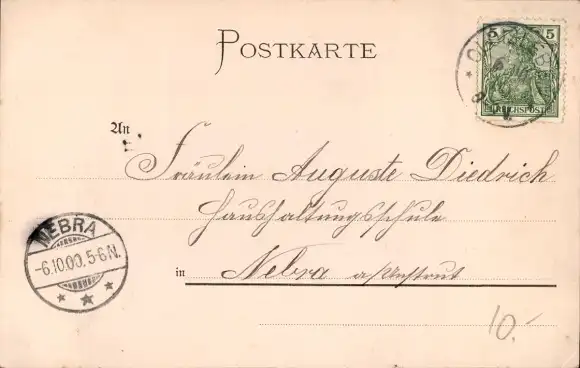 POSTKARTE
5 5
REICHSPOST
An
Fräulein Auguste Diedrich
Haushaltungsschule
in Nebra a/Unstrut
NEBRA
-6.10.00.5-6N.
10.-